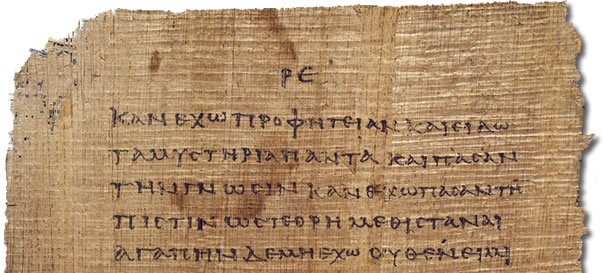 ΡΕ
ΚΑΝ ΕΧΩ ΠΡΟΦΗΤΕΙΑΝ ΚΑΙ ΕΙΔΩ
ΤΑ ΜΥϹΤΗΡΙΑ ΠΑΝΤΑ ΚΑΙ ΠΑϹΑΝ
ΤΗΝ ΓΝΩϹΙΝ ΚΑΝ ΕΧΩ ΠΑϹΑΝ ΤΗ
ΠΙϹΤΙΝ ΩϹΤΕ ΟΡΗ ΜΕΘΙϹΤΑΝΑΙ
ΑΓΑΠΗΝ ΔΕ ΜΗ ΕΧΩ ΟΥΘΕΝ ΕΙΜΙ